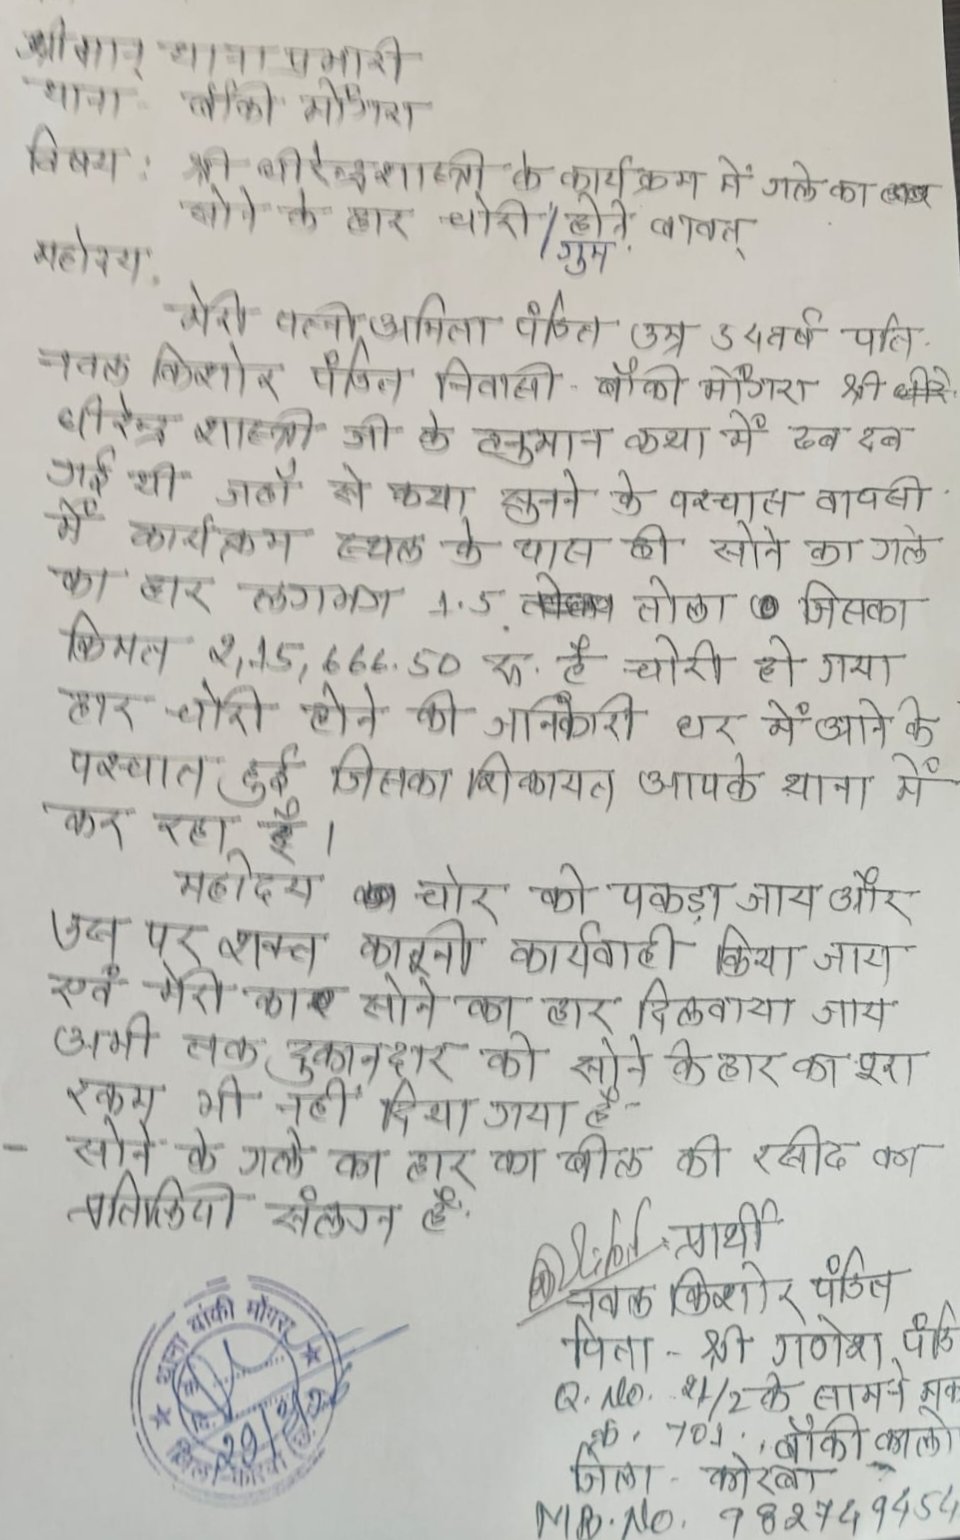 श्रीमान् थाना प्रभारी
थाना बाँकी मोंगरा
विषय : श्री धीरेन्द्र शास्त्री के कार्यक्रम में गले का
सोने के हार चोरी / होने बावत्
गुम
महोदय,
मेरी पत्नी अमिता पंडित उम्र 54 वर्ष पति
नवल किशोर पंडित निवासी - बाँकी मोंगरा श्री
धीरेन्द्र शास्त्री जी के हनुमान कथा में
गई थी जहाँ से कथा सुनने के पश्चात वापसी
में कार्यक्रम स्थल के पास की सोने का गले
का हार लगभग 1.5 तोला जिसका
किमत 2,15,666.50 रू. है चोरी हो गया
हार चोरी होने की जानकारी घर में आने के
पश्चात हुई जिसका शिकायत आपके थाना में
कर रहा हूँ ।
महोदय चोर को पकड़ा जाय और
उन पर शक्त कानूनी कार्यवाही किया जाय
एवं मेरी सोने का हार दिलवाया जाय
अभी तक दुकानदार को सोने के हार का पूरा
रकम भी नहीं दिया गया है -
- सोने के गले का हार का बील की रसीद का
प्रतिलिपी संलग्न है.
प्रार्थी
नवल किशोर पंडित
पिता - श्री गणेश पंडि
Q. No. 21/2 के सामने
क्र. 701, बाँकी कालो
जिला - कोरबा
MB. No. 982749454
थाना बांकी मोंगरा
जिला-कोरबा (छ.ग.)